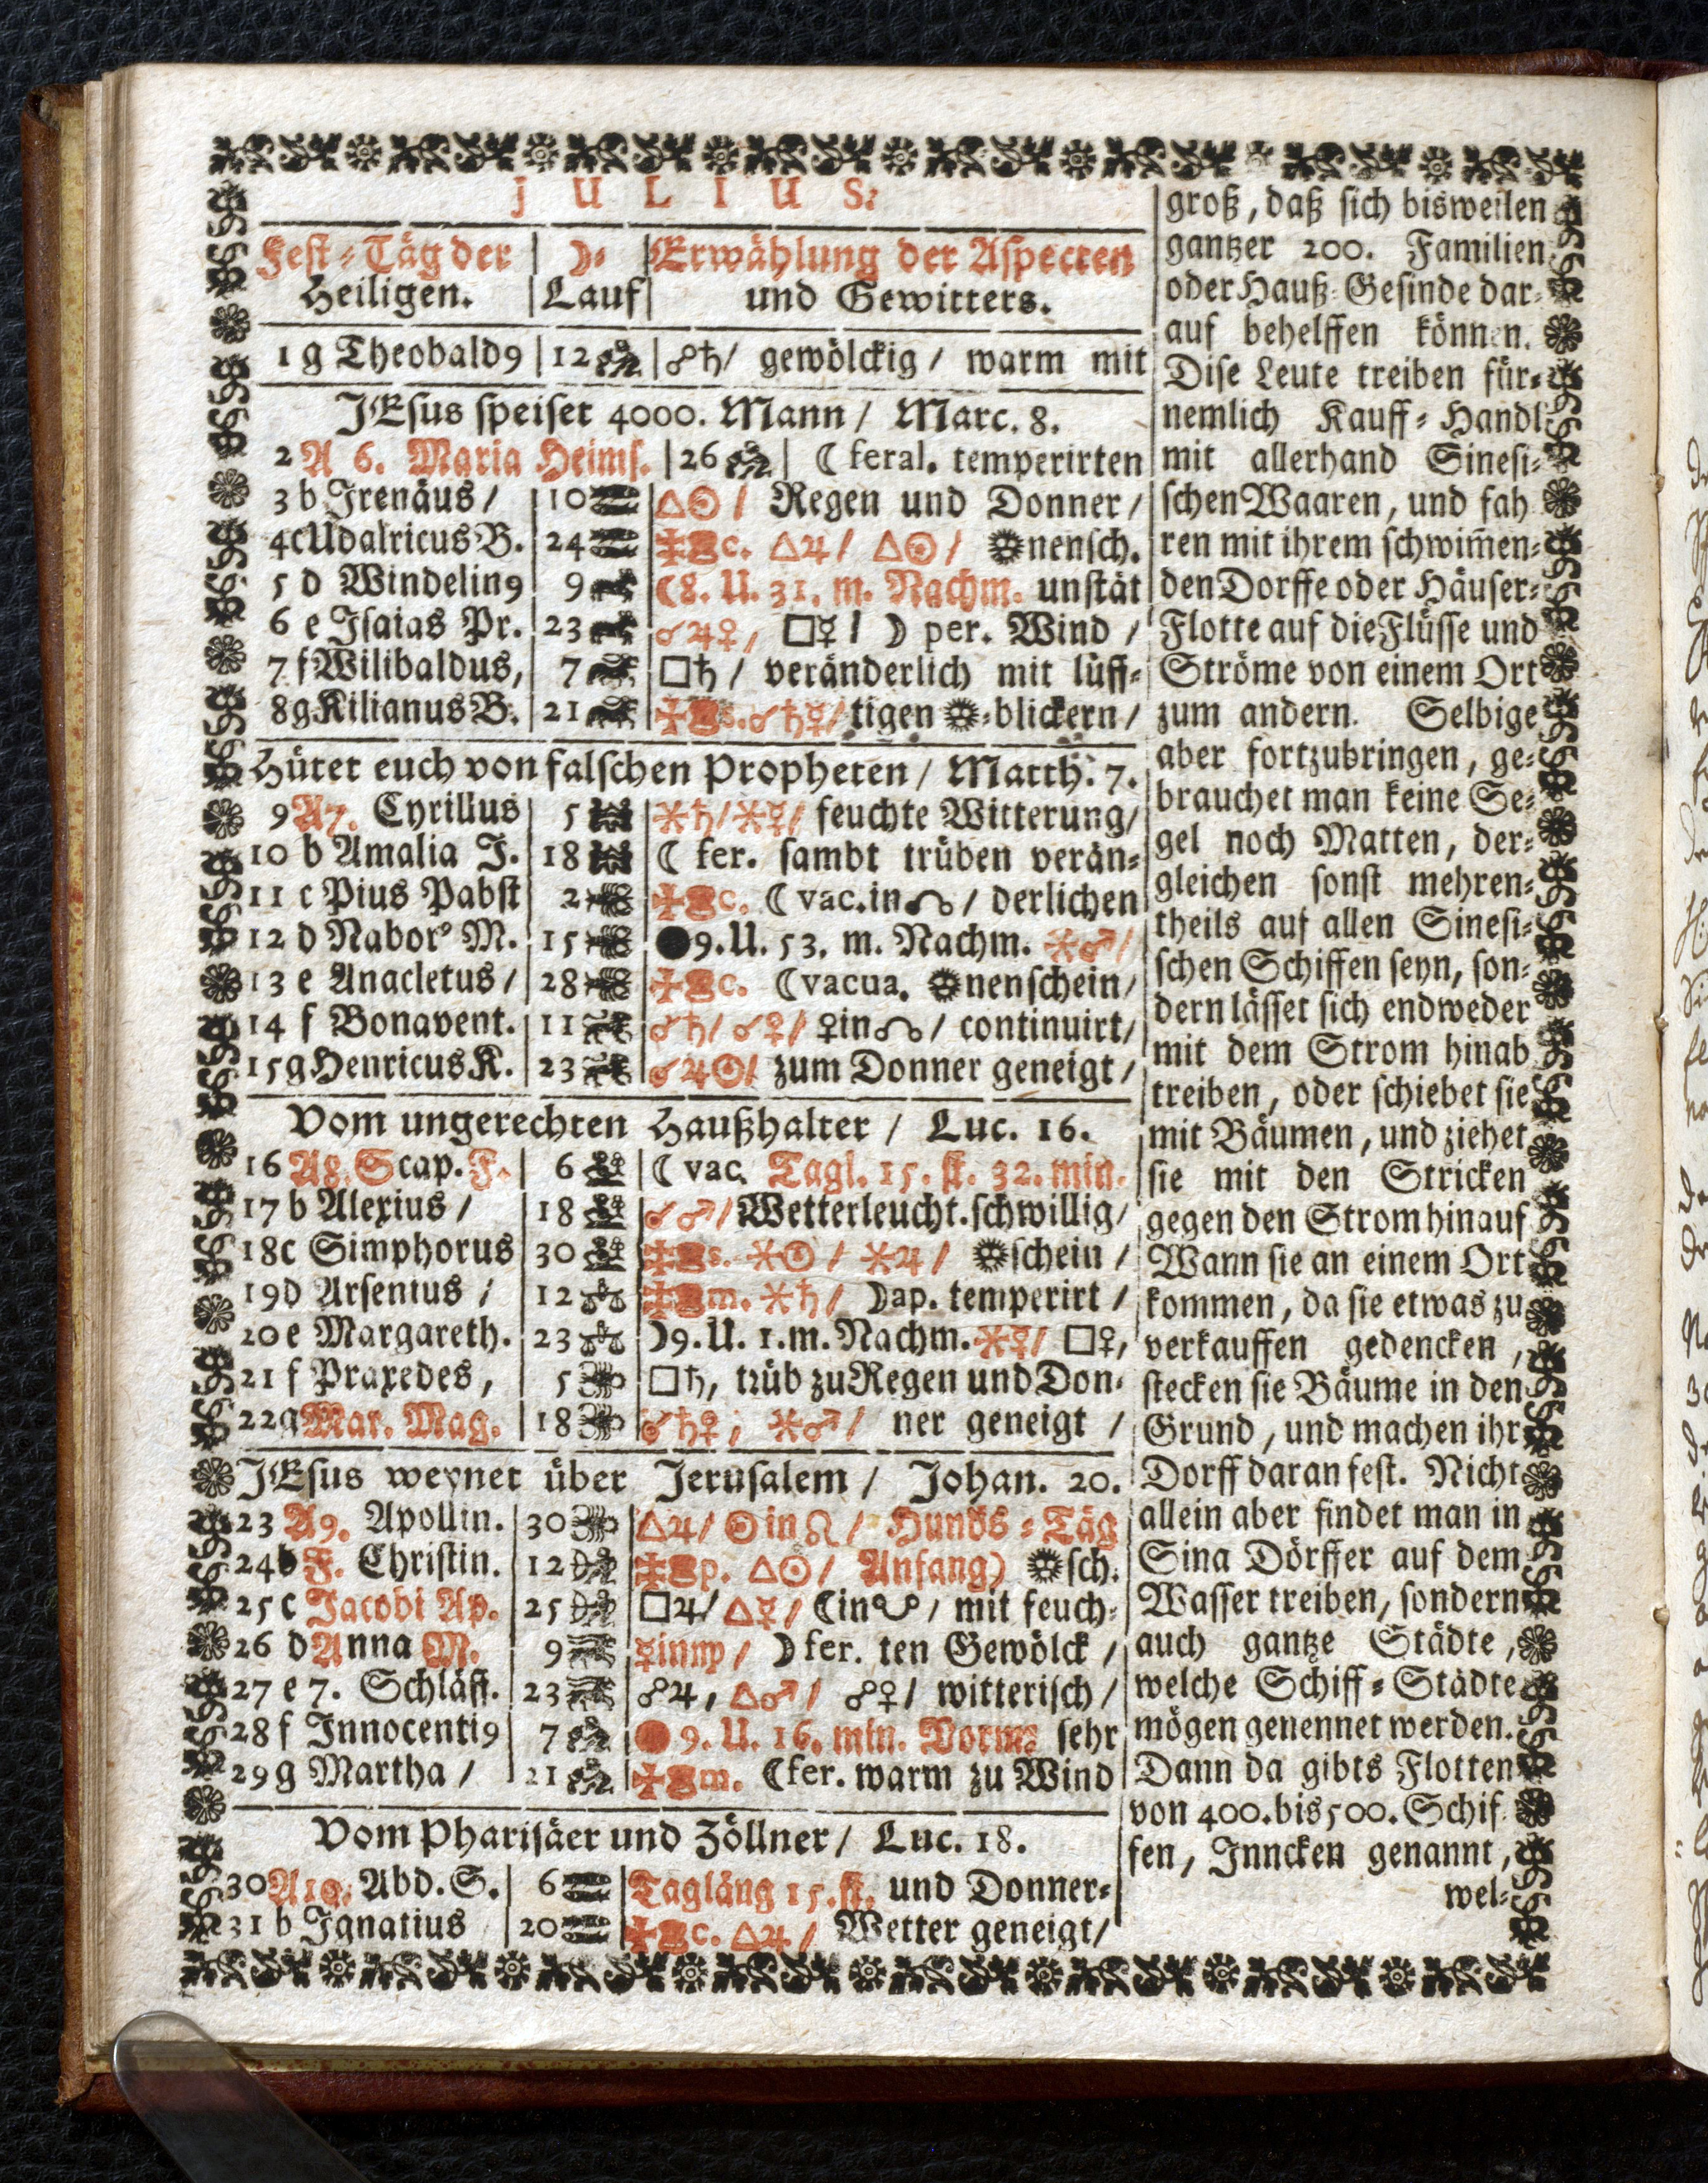 JULIUS.
Fest-Täg der | ☽= | Erwählung der Aspecten
Heiligen. | Lauf | und Gewitters.
1 g Theobald9 | 12 | ☍♄/ gewölckig / warm mit
JEsus speiset 4000. Mann / Marc. 8.
2 A 6. Maria Heims. | 26 | ☾ feral. temperirten
3 b Irenäus / | 10 | △☉ / Regen und Donner /
4c Udalricus B. | 24 | c. △♃ / △☉ / ☀nensch.
5 d Windelin9 | 9 | ☾8. U. 31. m. Nachm. unstät
6 e Isaias Pr. | 23 | ☌♃♀, □☿ / ☽ per. Wind /
7 f Wilibaldus, | 7 | □♄ / veränderlich mit lüff-
8g Kilianus B. | 21 | s. ☌♄☿/ tigen ☀-blickern /
Hütet euch von falschen Propheten / Matth. 7.
9 A7. Cyrillus | 5 | ⚹♄/⚹☿/ feuchte Witterung/
10 b Amalia J. | 18 | ☾ fer. sambt trüben verän-
11 c Pius Pabst | 2 | c. ☾ vac. in ☊ / derlichen
12 d Nabor9 M. | 15 | ●9. U. 53. m. Nachm. ⚹♂/
13 e Anacletus / | 28 | c. ☾vacua. ☀nenschein/
14 f Bonavent. | 11 | ☌♄/ ☌♀/ ♀in☊ / continuirt/
15g Henricus K. | 23 | ☌♃☉/ zum Donner geneigt /
Vom ungerechten Haußhalter / Luc. 16.
16 A8. Scap. F. | 6 | ☾ vac. Tagl. 15. st. 32. min.
17 b Alexius / | 18 | ☌♂/ Wetterleucht. schwillig/
18c Simphorus | 30 | s. ⚹☉ / ⚹♃ / ☀schein /
19d Arsenius / | 12 | m. ⚹♄/ ☽ap. temperirt /
20e Margareth. | 23 | ☽9. U. 1. m. Nachm. ⚹☿/ □♀,
21 f Praxedes, | 5 | □♄, trüb zu Regen und Don-
22g Mar. Mag. | 18 | ☌♄♀, ⚹♂/ ner geneigt /
JEsus weynet über Jerusalem / Johan. 20.
23 A9. Apollin. | 30 | △♃/ ☉in♌ / Hunds-Täg
24b F. Christin. | 12 | p. △☉/ Anfang) ☀sch.
25 c Jacobi Ap. | 25 | □♃/ △☿/ ☾in☋ / mit feuch-
26 d Anna M. | 9 | ☿in♍ / ☽ fer. ten Gewölck /
27 e 7. Schläff. | 23 | ☍♃, △♂/ ☍♀/ witterisch /
28 f Innocenti9 | 7 | ● 9. U. 16. min. Vorm. sehr
29 g Martha / | 21 | m. ☾fer. warm zu Wind
Vom Pharisäer und Zöllner / Luc. 18.
30 A10. Abd. S. | 6 | Tagläng 15. st. und Donner-
31 b Ignatius | 20 | c. △♃ / Wetter geneigt/
groß, daß sich bisweilen
gantzer 200. Familien
oder Hauß-Gesinde dar-
auf behelffen können.
Dise Leute treiben für-
nemlich Kauff-Handl
mit allerhand Sinesi-
schen Waaren, und fah
ren mit ihrem schwim̃en-
den Dorffe oder Häuser-
Flotte auf die Flüsse und
Ströme von einem Ort
zum andern. Selbige
aber fortzubringen, ge-
brauchet man keine Se-
gel noch Matten, der-
gleichen sonst mehren-
theils auf allen Sinesi-
schen Schiffen seyn, son-
dern lässet sich endweder
mit dem Strom hinab
treiben, oder schiebet sie
mit Bäumen, und ziehet
sie mit den Stricken
gegen den Strom hinauf
Wann sie an einem Ort
kommen, da sie etwas zu
verkauffen gedencken,
stecken sie Bäume in den
Grund, und machen ihr
Dorff daran fest. Nicht
allein aber findet man in
Sina Dörffer auf dem
Wasser treiben, sondern
auch gantze Städte,
welche Schiff-Städte
mögen genennet werden.
Dann da gibts Flotten
von 400. bis 500. Schif-
fen, Inncken genannt,
wel-